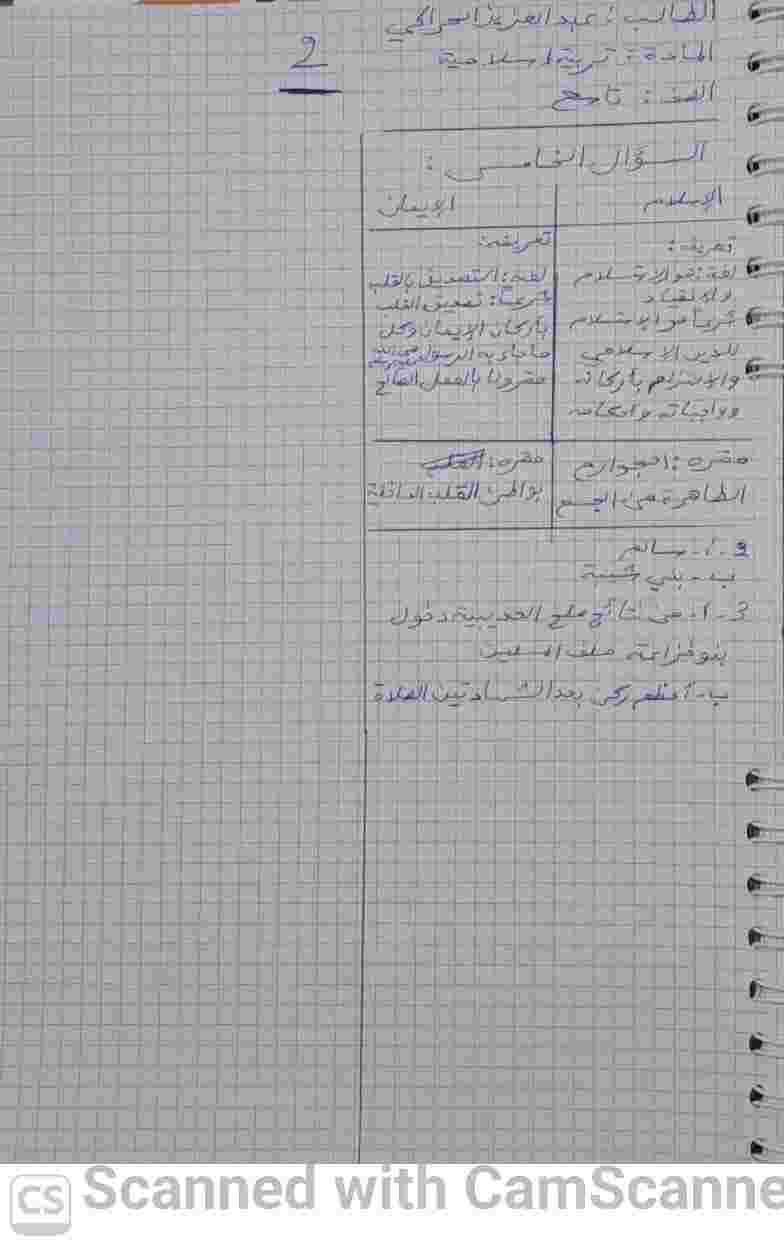 الطالب : عبد العزيز الحراكي
2
المادة : تربية اسلامية
الصف : تاسع
السؤال الخامس :
الإسلام
الإيمان
تعريفه :
لغة : هو الاستسلام
والانقياد
شرعاً هو الاستسلام
للدين الإسلامي
والالتزام بأركانه
وواجباته وأحكامه
تعريفه :
لغة : التصديق بالقلب
شرعاً : تصديق القلب
بأركان الإيمان وكل
ما جاء به الرسول صلى الله عليه وسلم
مقرونا بالعمل الصالح
مقره : الجوارح
الظاهرة من الجسم
مقره : القلب
بواطن القلب الداخلة
2 - أ - سالم
ب - بني شيبة
3 - أ - من نتائج صلح الحديبية دخول
بنو خزاعة حلف المسلمين
ب - أعظم ركن بعد الشهادتين الصلاة
CS Scanned with CamScanne